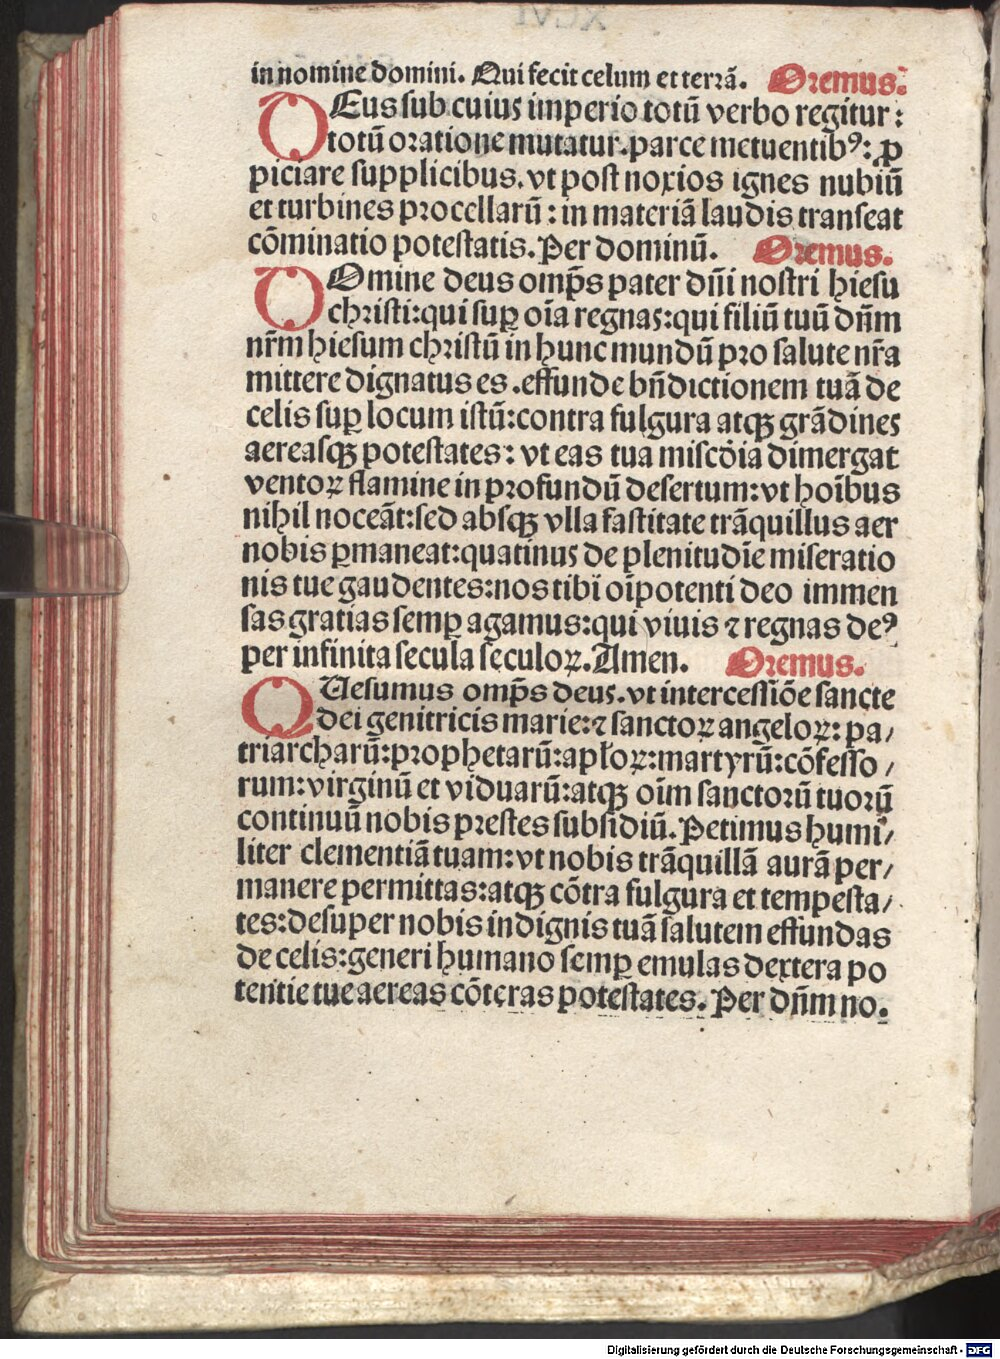 XCVI
in nomine domini. Qui fecit celum et terrã. Oremus.
DEus sub cuius imperio totũ verbo regitur:
totũ oratione mutatur. parce metuentibꝰ: ꝓ
piciare supplicibus. vt post noxios ignes nubiũ
et turbines procellarũ: in materiã laudis transeat
cõminatio potestatis. Per dominũ. Oremus.
DOmine deus omp̃s pater dñi nostri hiesu
christi: qui suꝑ oĩa regnas: qui filiũ tuũ dñm
nr̃m hiesum christũ in hunc mundũ pro salute nr̃a
mittere dignatus es. effunde bñdictionem tuã de
celis suꝑ locum istũ: contra fulgura atqꝫ grãdines
aereasqꝫ potestates: vt eas tua miscd̃ia dimergat
ventoꝝ flamine in profundũ desertum: vt hoĩbus
nihil noceãt: sed absqꝫ vlla fastitate trãquillus aer
nobis ꝑmaneat: quatinus de plenitudĩe miseratio
nis tue gaudentes: nos tibĩ oĩpotenti deo immen
sas gratias semꝑ agamus: qui viuis ⁊ regnas deꝰ
per infinita secula seculoꝝ. Amen. Oremus.
QUesumus omp̃s deus. vt intercessiõe sancte
dei genitricis marie: ⁊ sanctoꝝ angeloꝝ: pa/
triarcharũ: prophetarũ: apl̃oꝝ: martyrũ: cõfesso/
rum: virginũ et viduarũ: atqꝫ oĩm sanctorũ tuorũ
continuũ nobis prestes subsidiũ. Petimus humi/
liter clementiã tuam: vt nobis trãquillã aurã per/
manere permittas: atqꝫ cõtra fulgura et tempesta/
tes: desuper nobis indignis tuã salutem effundas
de celis: generi humano semꝑ emulas dextera po
tentie tue aereas cõteras potestates. Per dñm no.
Digitalisierung gefördert durch die Deutsche Forschungsgemeinschaft - DFG